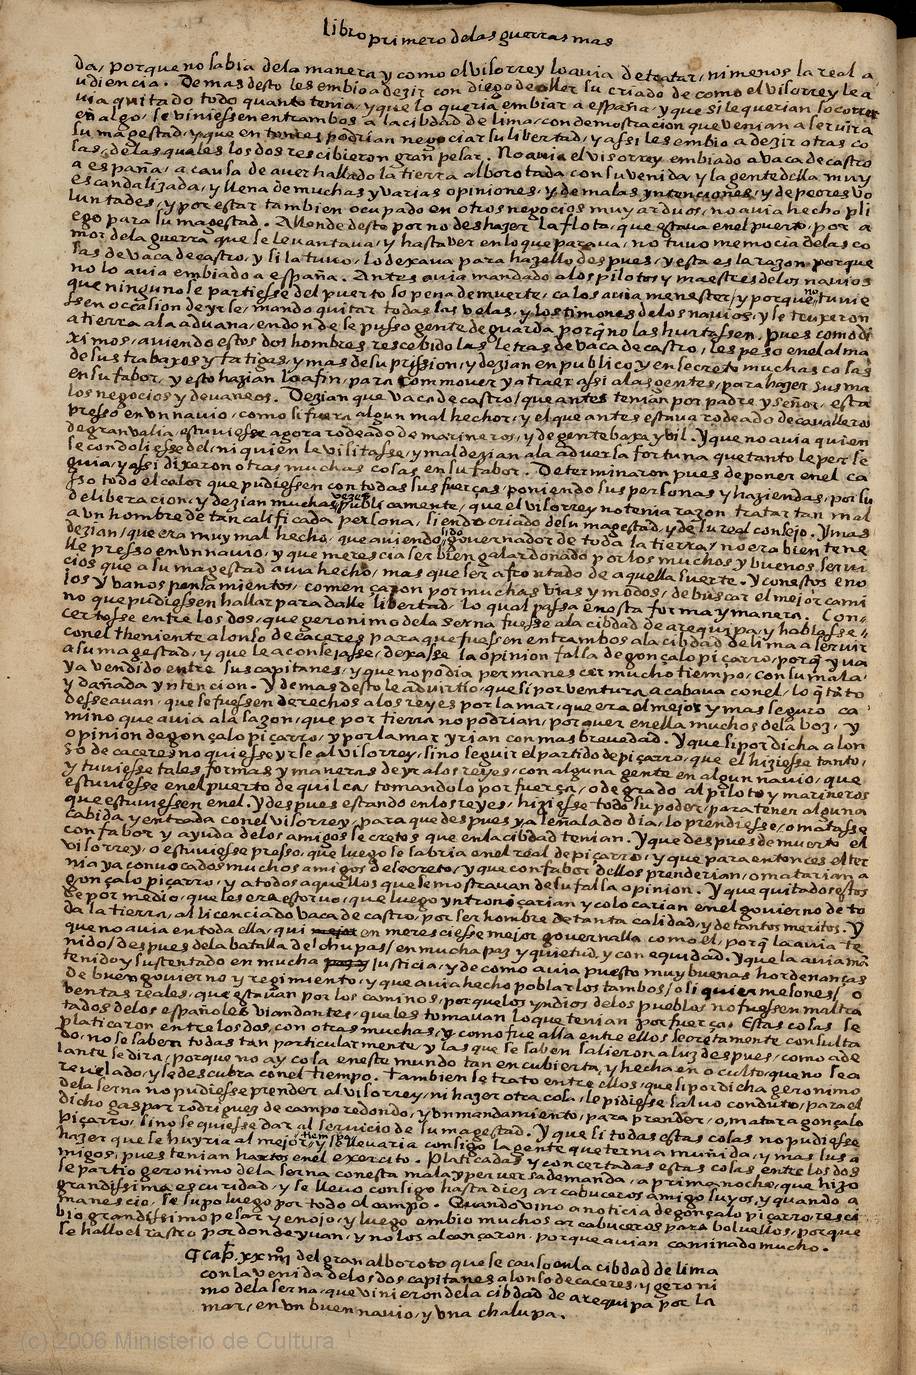 Libro primero delas guerras mas
da, porque no sabia dela manera y como el visorrey lo auia de tratar, ni menos la real a
udiencia. Demas desto les embio a dezir con diego de aller su criado de como el visorrey le a
uia quitado todo quanto tenia, y que lo queria embiar a españa, y que si le querian socorrer
en algo, se viniessen entrambos a la cibdad de lima, con demostracion que venian a seruir a
su magestad, y que entonces podrian negociar su libertad, y assi les embio a dezir otras co
sas, delas quales los dos rescibieron gran pesar. No auia el visorrey embiado a vaca de castro
a españa, a causa de auer hallado la tierra alborotada con su venida, y la gente della muy
escandalizada, y llena de muchas y varias opiniones, y de malas yntenciones, y de peores vo
luntades, y por estar tambien ocupado en otros negocios muy arduos, no auia hecho pli
ego para su magestad. Allende desto por no deshazer la flota, que estaua en el puerto, por a
mor dela guerra que se leuantaua, y hasta ver en lo que paraua, no tuuo memocia delas co
sas de vaca de castro, y si la tuuo, lo dexaua para hazello despues, y esta es la razon porque
no lo auia embiado a españa. Antes auia mandado a los pilotos y maestres delos nauios
que ninguno se partiesse del puerto so pena de muerte, ca los auia menester, y porque no tuuie
ssen occasion de yrse, mando quitar todas las velas, y los timones delos nauios, y se truxeron
a tierra ala aduana, en donde se pusso gente de guarda porq̃ no las hurtassen. Pues como di
ximos, auiendo estos dos hombres rescebido las letras de vaca de castro, les peso en el alma
de sus trabaxos y fatigas, y mas de su prission, y dezian en publico y en secreto muchas cosas
en su fabor, y esto hazian lo a fin, para commouer y atraer assi a las gentes, para hazer sus ma
los negocios y deuaneos. Dezian que vaca de castro, que antes tenian por padre y señor, esta
presso en vn nauio, como si fuera algun mal hechor, y el que antes estaua rodeado de caualleros
de gran valia, estuuiesse agora rodeado de marineros, y de gente baxa y vil. Y que no auia quien
se condoliesse del, ni quien le visitasse, y maldezian ala aduersa fortuna que tanto le perse
guia, y assi dixeron otras muchas cosas en su fabor. Determinaron pues de poner en el ca
sso todo el calor que pudiessen con todas sus fuerças, poniendo sus personas y haziendas, por su
deliberacion, y dezian muchas vezes publicamente, que el visorrey no tenia razon tratar tan mal
a vn hombre de tan calificada persona, siendo criado de su magestad, y de su real consejo. Y mas
dezian, que era muy mal hecho, que auiendo sido gouernador de toda la tierra, no era bien tene
lle presso en vn nauio, y que merescia ser bien galardonado por los muchos y buenos serui
cios que a su magestad auia hecho, mas que ser afrontado de aquella suerte. Y con estos eno
jos y vanos pensamientos, començaron por muchas vias y modos, de buscar el mejor cami
no que pudiessen hallar para dalle libertad, lo qual passa en esta forma y manera. Con-
certosse entre los dos, que geronimo dela serna fuesse ala cibdad de arequipa, y hablasse
con el theniente alonso de caceres para que fuessen entrambos ala cibdad de lima a seruir
a su magestad, y que le aconsejasse, dexasse la opinion falsa de gonçalo piçarro, porq̃ yua
ya vendido entre sus capitanes, y que no podia permanescer mucho tiempo, con su mala
y dañada yntencion. Y demas desto le aduirtio, que si por ventura acabaua con el, lo q̃ tãto
desseauan, que se fuessen derechos a los reyes por la mar, que era el mejor y mas seguro ca
mino que auia ala sazon, que por tierra no podrian, por auer en ella muchos dela boz, y
opinion de gonçalo piçarro, y por la mar yrian con mas breuedad. Y que si por dicha alon
so de caceres no quiesse yrse al visorrey, sino seguir el partido de piçarro, que el hiziesse tanto,
y tuuiesse tales formas y maneras de yr a los reyes, con alguna gente en algun nauio, que
estuuiesse en el puerto de quilca, tomandolo por fuerça, o de grado al piloto y marineros
que estuuiessen en el. Y despues estando en los reyes, hiziesse todo su poder, para tener alguna
cabida y entrada con el visorrey, para que despues ya señalado dia, lo prendiesse, o matasse
con fabor y ayuda delos amigos secretos que en la cibdad tenian. Y que despues de muerto el
visorrey, o estuuiesse presso, que luego se sabria en el real de piçarro, y que para entonces el ter
nia ya conuocados muchos amigos de secreto, y que con fabor dellos prenderian, o matarian a
gonçalo piçarro, y a todos aquellos que se mostrauan de su falsa opinion. Y que quitados estos
de por medio, que les era estoruo, que luego yntroniçarian y colocarian en el gouierno de to
da la tierra, al licenciado vaca de castro, por ser hombre de tanta calidad, y de tantos meritos. Y
que no auia en toda ella, qui en meresciesse mejor gouernalla como el, porq̃ la auia te
nido, despues dela batalla de chupas, en mucha paz y quietud, y con equidad. Y que la auia mã
tenido y sustentado en mucha justicia, y de como auia puesto muy buenas hordenanças
de buen gouierno y regimiento, y que auia hecho poblar los tambos, o si quier mesones, o
ventas reales, que estauan por los caminos, porque los yndios delos pueblos no fuessen maltra
tados delos españoles viandantes, que les tomauan lo que tenian por fuerça. Estas cosas se
platicaron entre los dos, con otras muchas, y como fue alla entre ellos secretamente consulta
do, no se saben todas tan particularmente, y las que se saben salieron a luz despues, como ade
lante se dira, porque no ay cosa en este mundo tan encubierta, y hecha en oculto, que no sea
reuelado, y se descubra con el tiempo. Tambien se trato entre ellos, que si por dicha geronimo
dela serna no pudiesse prender al visorrey, ni hazer otra cosa, le pidiesse saluo conduto, para el
dicho gaspar rodriguez de campo redondo, y vn mandamiento, para prender, o matar a gonçalo
piçarro, sino se quiesse dar al seruicio de su magestad. Y que si todas estas cosas no pudiesse
hazer que se huyria al mejor tiempo, y se lleuaria consigo la gente que ternia muñida, y mas sus a
migos, pues tenian hartos en el exercito. Platicadas y concertadas estas cosas, entre los dos
se partio geronimo dela serna con esta mala y peruersa demanda, a prima noche, que hizo
grandissima escuridad, y se lleuo consigo hasta diez arcabuceros amigo suyos, y quando a
manescio, se supo luego por todo el campo. Quando vino a noticia de gonçalo piçarro, resci
bio grandissimo pesar y enojo, y luego embio muchos arcabuceros para boluellos, porque
se hallo el rastro por donde yuan, y no los alcançaron, porque auian caminado mucho.
¶ Cap. xxiiij del gran alboroto que se causo en la cibdad de lima
con la venida delos dos capitanes alonso de caceres, y geroni
mo dela serna, que vinieron dela cibdad de arequipa por la
mar, en vn buen nauio, y vna chalupa.
(c) 2006 Ministerio de Cultura